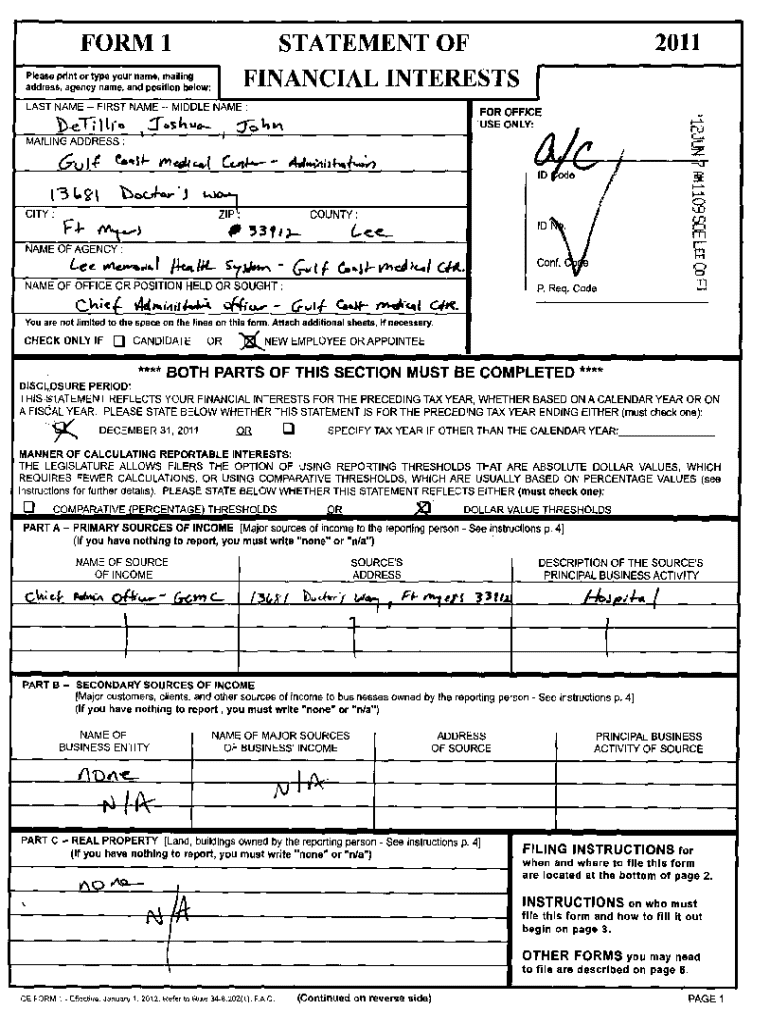 FORM 1 STATEMENT OF 2011
Please print or type your name, mailing address, agency name, and position below:
FINANCIAL INTERESTS
LAST NAME -- FIRST NAME -- MIDDLE NAME :
DeTillio, Joshua, John
MAILING ADDRESS :
Gulf Coast Medical Center - Administration
13681 Doctor's Way
CITY : ZIP : COUNTY :
Ft Myers 33912 Lee
NAME OF AGENCY :
Lee Memorial Health System - Gulf Coast Medical Ctr.
NAME OF OFFICE OR POSITION HELD OR SOUGHT :
Chief Administrative Officer - Gulf Coast Medical Ctr.
You are not limited to the space on the lines on this form. Attach additional sheets, if necessary.
CHECK ONLY IF ☐ CANDIDATE OR ☒ NEW EMPLOYEE OR APPOINTEE
FOR OFFICE
USE ONLY:
a/c
ID Code
ID No.
Conf. Code
P. Req. Code
'12JUN 7 AM1109 SOE LEE CO Fl
**** BOTH PARTS OF THIS SECTION MUST BE COMPLETED ****
DISCLOSURE PERIOD:
THIS STATEMENT REFLECTS YOUR FINANCIAL INTERESTS FOR THE PRECEDING TAX YEAR, WHETHER BASED ON A CALENDAR YEAR OR ON
A FISCAL YEAR. PLEASE STATE BELOW WHETHER THIS STATEMENT IS FOR THE PRECEDING TAX YEAR ENDING EITHER (must check one):
☒ DECEMBER 31, 2011 OR ☐ SPECIFY TAX YEAR IF OTHER THAN THE CALENDAR YEAR:
MANNER OF CALCULATING REPORTABLE INTERESTS:
THE LEGISLATURE ALLOWS FILERS THE OPTION OF USING REPORTING THRESHOLDS THAT ARE ABSOLUTE DOLLAR VALUES, WHICH
REQUIRES FEWER CALCULATIONS, OR USING COMPARATIVE THRESHOLDS, WHICH ARE USUALLY BASED ON PERCENTAGE VALUES (see
instructions for further details). PLEASE STATE BELOW WHETHER THIS STATEMENT REFLECTS EITHER (must check one):
☐ COMPARATIVE (PERCENTAGE) THRESHOLDS OR ☒ DOLLAR VALUE THRESHOLDS
PART A -- PRIMARY SOURCES OF INCOME [Major sources of income to the reporting person - See instructions p. 4]
(If you have nothing to report, you must write "none" or "n/a")
NAME OF SOURCE OF INCOME
SOURCE'S ADDRESS
DESCRIPTION OF THE SOURCE'S PRINCIPAL BUSINESS ACTIVITY
Chief Admin Officer - GCMC 13681 Doctor's Way, Ft Myers 33912 Hospital
PART B -- SECONDARY SOURCES OF INCOME
[Major customers, clients, and other sources of income to businesses owned by the reporting person - See instructions p. 4]
(If you have nothing to report , you must write "none" or "n/a")
NAME OF BUSINESS ENTITY
NAME OF MAJOR SOURCES OF BUSINESS' INCOME
ADDRESS OF SOURCE
PRINCIPAL BUSINESS ACTIVITY OF SOURCE
none
N/A N/A
PART C -- REAL PROPERTY [Land, buildings owned by the reporting person - See instructions p. 4]
(If you have nothing to report, you must write "none" or "n/a")
none
N/A
FILING INSTRUCTIONS for
when and where to file this form
are located at the bottom of page 2.
INSTRUCTIONS on who must
file this form and how to fill it out
begin on page 3.
OTHER FORMS you may need
to file are described on page 6.
CE FORM 1 - Effective: January 1, 2012. Refer to Rule 34-8.202(1), F.A.C. (Continued on reverse side) PAGE 1